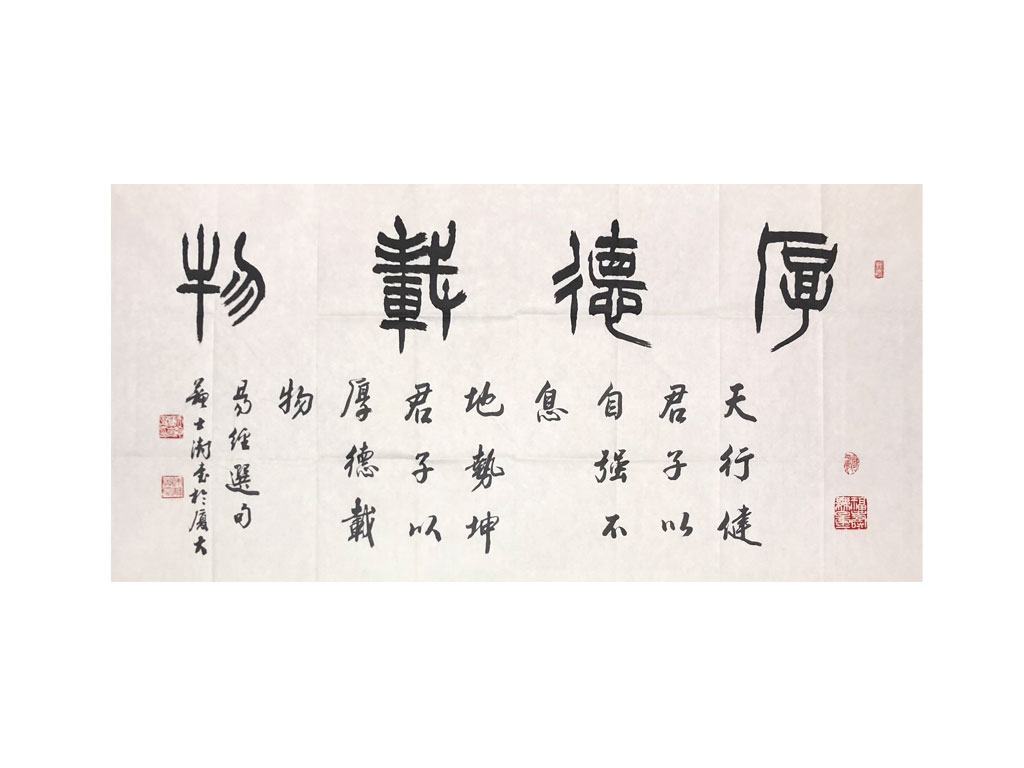 厚德載物
天行健
君子以
自强不
息
地勢坤
君子以
厚德載
物
易經選句
士澍書於廈大